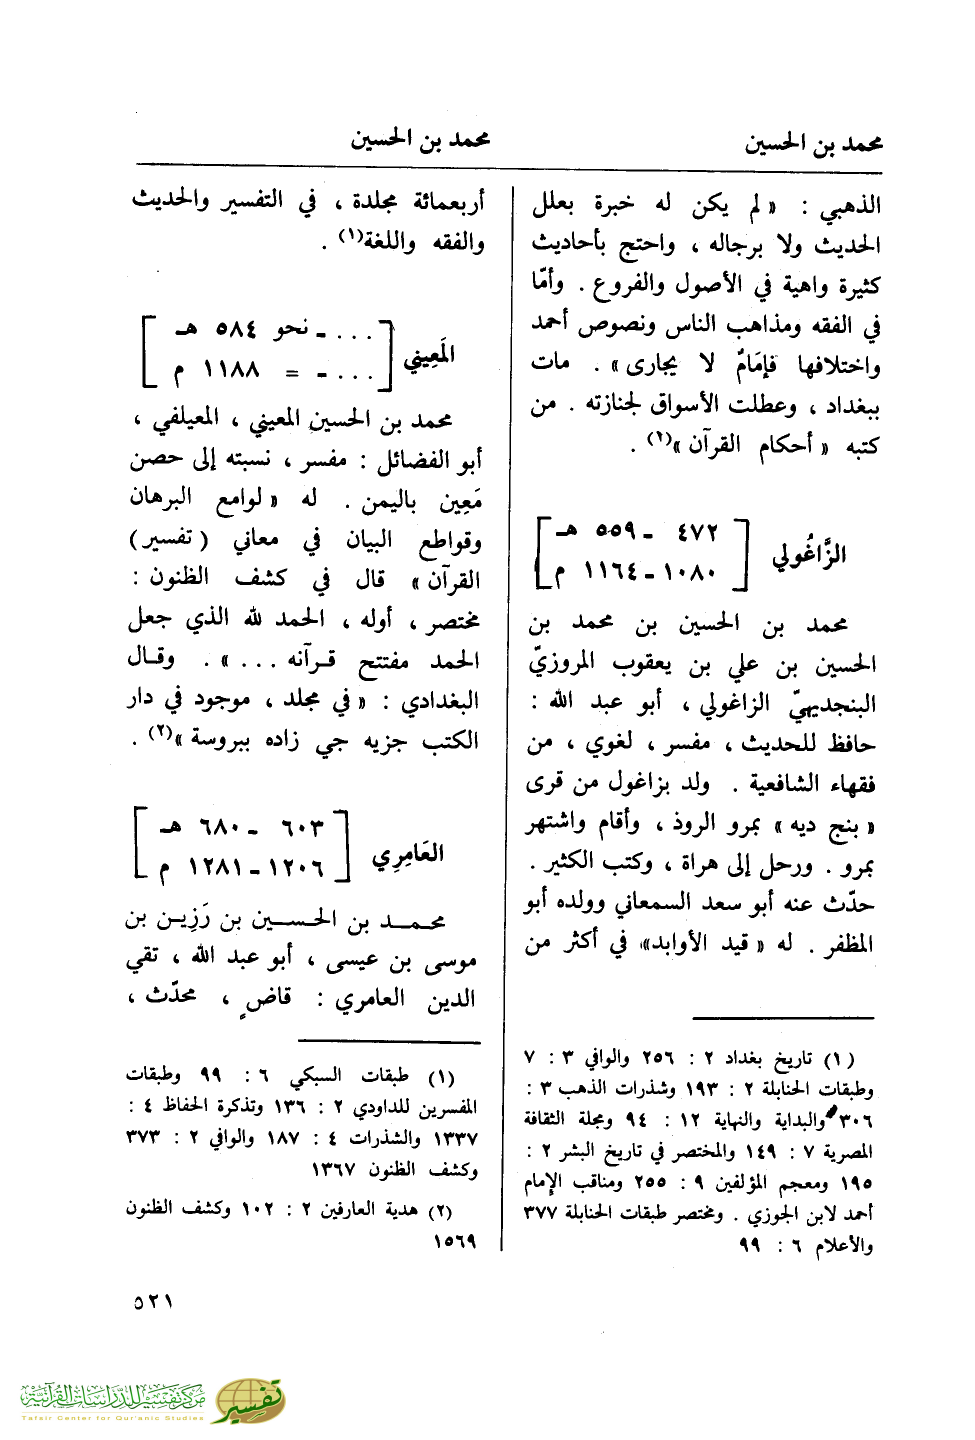 محمد بن الحسين
محمد بن الحسين
الذهبي : « لم يكن له خبرة بعلل
الحديث ولا برجاله ، واحتج بأحاديث
كثيرة واهية في الأصول والفروع . وأمّا
في الفقه ومذاهب الناس ونصوص أحمد
واختلافها فإمَامٌ لا يجارى» . مات
ببغداد ، وعطلت الأسواق لجنازته . من
كتبه « أحكام القرآن »(١) .
الزَّاغُولي
[ ٤٧٢ - ٥٥٩ هـ ]
[ ١٠٨٠ - ١١٦٤ م ]
محمد بن الحسين بن محمد بن
الحسين بن علي بن يعقوب المروزيّ
البنجديهيّ الزاغولي ، أبو عبد الله :
حافظ للحديث ، مفسر ، لغوي ، من
فقهاء الشافعية . ولد بزاغول من قرى
« بنج ديه » بمرو الروذ ، وأقام واشتهر
بمرو . ورحل إلى هراة ، وكتب الكثير .
حدّث عنه أبو سعد السمعاني وولده أبو
المظفر . له « قيد الأوابد» في أكثر من
(١) تاريخ بغداد ٢ : ٢٥٦ والوافي ٣ : ٧
وطبقات الحنابلة ٢ : ١٩٣ وشذرات الذهب ٣ :
٣٠٦ والبداية والنهاية ١٢ : ٩٤ ومجلة الثقافة
المصرية ٧ : ١٤٩ والمختصر في تاريخ البشر ٢ :
١٩٥ ومعجم المؤلفين ٩ : ٢٥٥ ومناقب الإمام
أحمد لابن الجوزي . ومختصر طبقات الحنابلة ٣٧٧
والأعلام ٦ : ٩٩
أربعمائة مجلدة ، في التفسير والحديث
والفقه واللغة(١) .
المَعِيني
[ . . . - نحو ٥٨٤ هـ ]
[ . . . - = ١١٨٨ م ]
محمد بن الحسين المعيني ، المعيلفي ،
أبو الفضائل : مفسر ، نسبته إلى حصن
مَعِين باليمن . له « لوامع البرهان
وقواطع البيان في معاني (تفسير)
القرآن » قال في كشف الظنون :
مختصر ، أوله ، الحمد لله الذي جعل
الحمد مفتتح قرآنه ... » . وقال
البغدادي : « في مجلد ، موجود في دار
الكتب جزيه جي زاده ببروسة »(٢) .
العَامِرِي
[ ٦٠٣ - ٦٨٠ هـ ]
[ ١٢٠٦ - ١٢٨١ م ]
محمد بن الحسين بن رَزِين بن
موسى بن عيسى ، أبو عبد الله ، تقي
الدين العامري : قاضٍ ، محدّث ،
(١) طبقات السبكي ٦ : ٩٩ وطبقات
المفسرين للداودي ٢ : ١٣٦ وتذكرة الحفاظ ٤ :
١٣٣٧ والشذرات ٤ : ١٨٧ والوافي ٢ : ٣٧٣
وكشف الظنون ١٣٦٧
(٢) هدية العارفين ٢ : ١٠٢ وكشف الظنون
١٥٦٩
٥٢١
مركز تفسير للدراسات القرآنية
Tafsir Center for Qur'anic Studies
تفسير